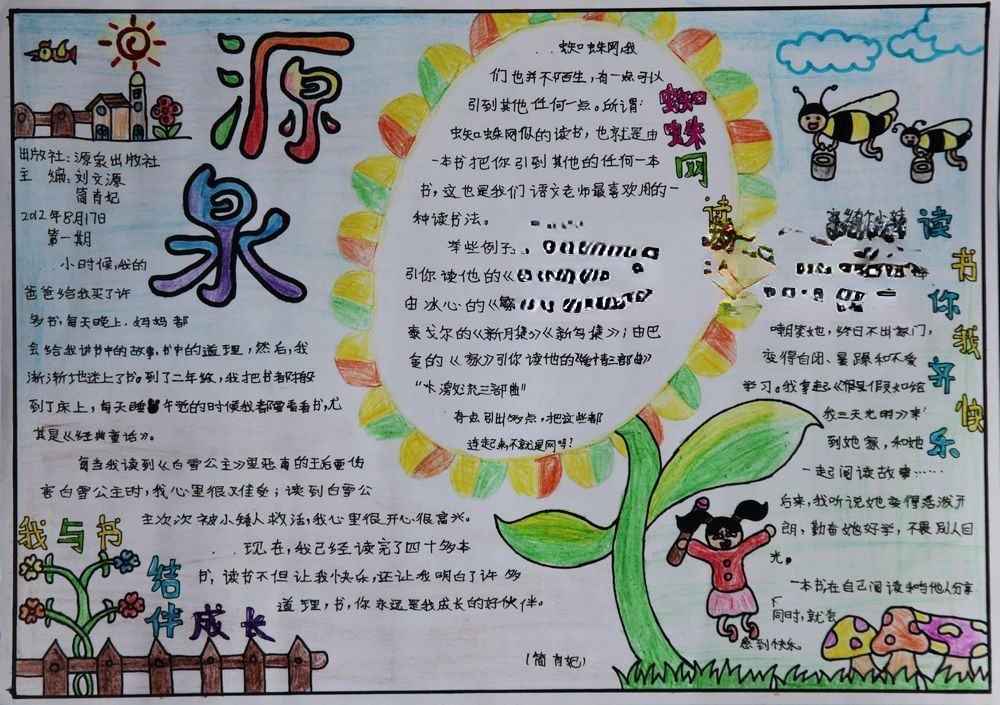 源泉
出版社:源泉出版社
主 编:刘文源
简肖妃
2012年8月17日
第一期
小时候,我的
爸爸给我买了许
多书,每天晚上,妈妈都
会给我讲书中的故事,书中的道理,然后,我
渐渐地迷上了书。到了二年级,我把书都搬
到了床上,每天睡午觉的时候我都要看看书,尤
其是《经典童话》。
每当我读到《白雪公主》里恶毒的王后要伤
害白雪公主时,我心里很难受;读到白雪公
主次次被小矮人救活,我心里很开心很高兴。
现在,我已经读完了四十多本
书,读书不但让我快乐,还让我明白了许多
道理,书,你永远是我成长的好伙伴。
(简肖妃)
我与书
结伴成长
蜘蛛网读
蜘蛛网,我
们也并不陌生,有一点可以
引到其他任何一点。所谓
蜘蛛网似的读书,也就是由
一本书把你引到其他的任何一本
书,这也是我们语文老师最喜欢用的一
种读书法。
举些例子:
引你读他的《
由冰心的《繁
泰戈尔的《新月集》《飞鸟集》;由巴
金的《家》引你读他的《爱情三部曲》
“激流三部曲”
每点引出多点,把这些都
连起来不就是网吗?
读书你我齐快乐
嘲笑她,终日不出家门,
变得自闭、暴躁和不爱
学习。我拿起《假如给
我三天光明》来
到她家,和她
一起阅读故事……
后来,我听说她变得活泼开
朗,勤奋好学,不畏别人目
光。
一本书在自己阅读和与他人分享
同时,就会
感到快乐。